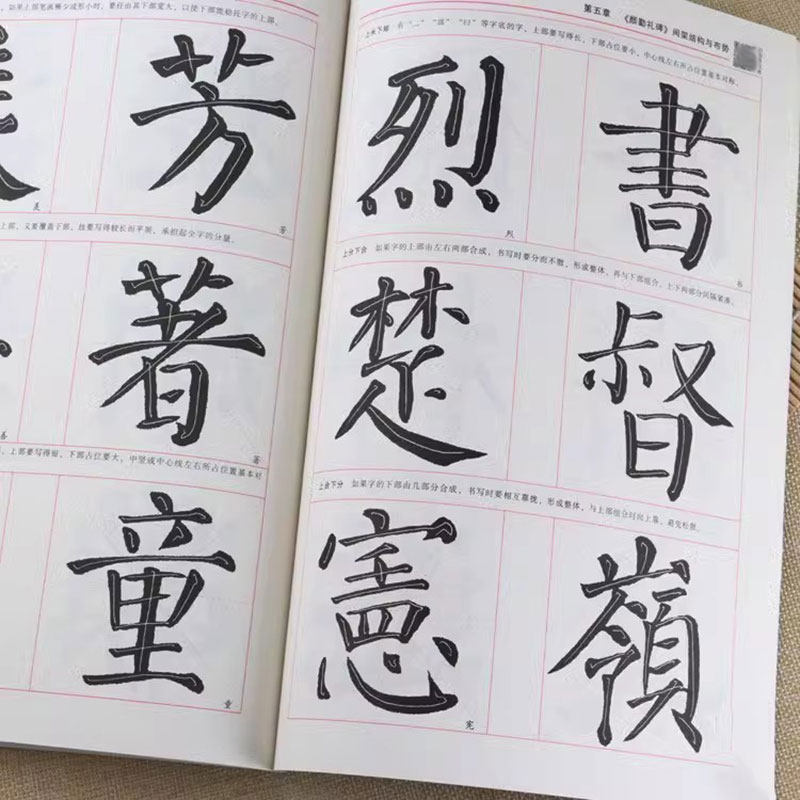 如果上部笔画稀少或形小时，要任由其下部宽大，以使下部能稳托字的上部。
芳
美 芳
上部，又要覆盖下部，故要写得较长而平展，承担起全字的分量。
著
善 著
上部要写得细，下部占位要大，中竖或中心线左右所占位置基本对
童
童
第五章 《颜勤礼碑》间架结构与布势
上长下短 有“灬”“皿”“曰”等字底的字，上部要写得长，下部占位要小，中心线左右所占位置基本对称。
烈 書
烈 书
上分下合 如果字的上部由左右两部合成，书写时要分而不散，形成整体，再与下部组合，上下两部分间隔紧凑。
楚 督
上合下分 如果字的下部由几部分合成，书写时要相互靠拢，形成整体，与上部组合时向上靠，避免松散。
憲 嶺
宪